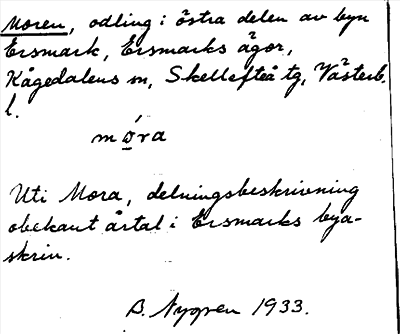 Moren, odling i östra delen av byn
Ersmark, Ersmarks ägor,
Kågedalens sn, Skellefteå tg, Västerb.
l.
mo̲ra
Uti Mora, delningsbeskrivning
obekant årtal i Ersmarks bya-
skrin.
B. Nygren 1933.